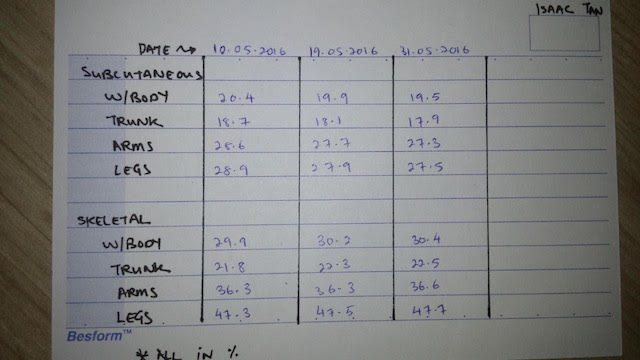 ISAAC TAN
DATE → 10.05.2016 19.05.2016 31.05.2016
SUBCUTANEOUS
W/BODY 20.4 19.9 19.5
TRUNK 18.7 18.1 17.9
ARMS 28.6 27.7 27.3
LEGS 28.9 27.9 27.5
SKELETAL
W/BODY 29.9 30.2 30.4
TRUNK 21.8 22.3 22.5
ARMS 36.3 36.3 36.6
LEGS 47.3 47.5 47.7
Besform™
* ALL IN %